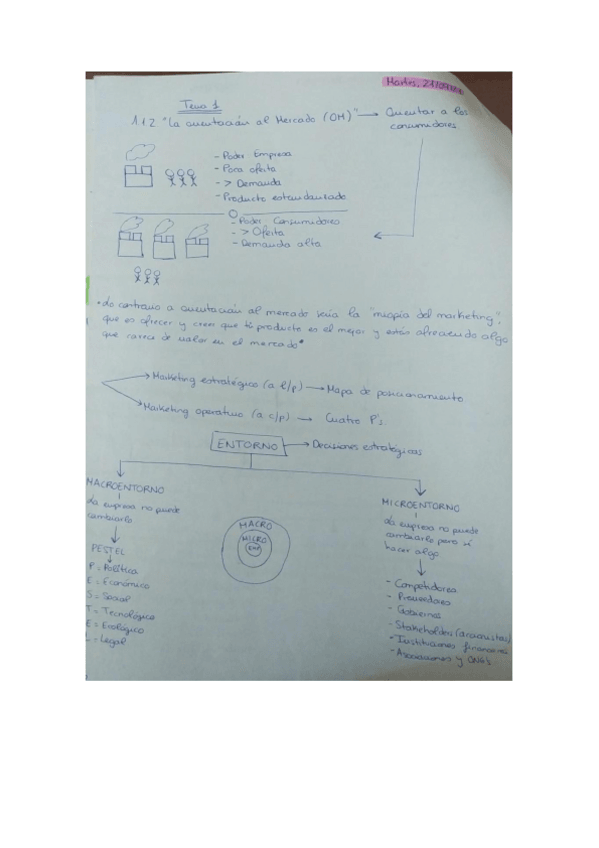 Martes, 21/09
Tema 1
1.1.2 "La orientación al Mercado (OM)" → Orientar a los
consumidores
- Poder Empresa
- Poca oferta
- > Demanda
- Producto estandarizado
- Poder Consumidores
- > Oferta
- Demanda alta
• Lo contrario a orientación al mercado sería la "miopía del marketing",
que es ofrecer y creer que tu producto es el mejor y estás ofreciendo algo
que carece de valor en el mercado*
→ Marketing estratégico (a l/p) → Mapa de posicionamiento
→ Marketing operativo (a c/p) → Cuatro P's.
ENTORNO → Decisiones estratégicas
MACROENTORNO
La empresa no puede
cambiarlo
PESTEL
P = Política
E = Económico
S = Social
T = Tecnológico
E = Ecológico
L = Legal
MACRO
MICRO
EMP
MICROENTORNO
La empresa no puede
cambiarlo pero sí
hacer algo
- Competidores
- Proveedores
- Gobiernos
- Stakeholders (accionistas)
- Instituciones financieras
- Asociaciones y ONG's